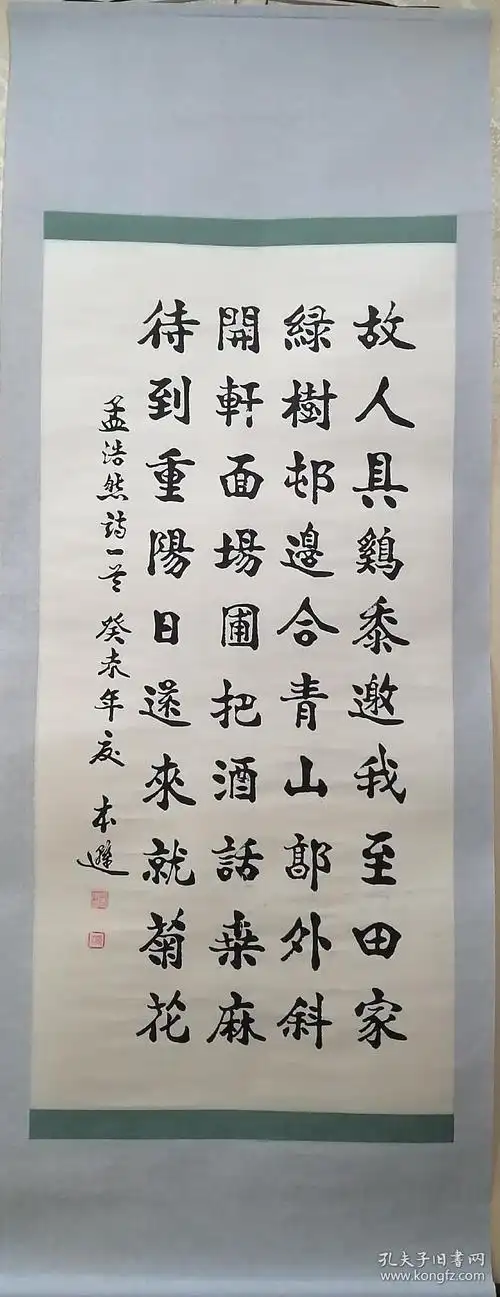 故人具鷄黍邀我至田家
綠樹邨邊合青山郭外斜
開軒面場圃把酒話桑麻
待到重陽日還來就菊花
孟浩然詩一首 癸未年夏 本遜
孔夫子旧书网
www.kongfz.com